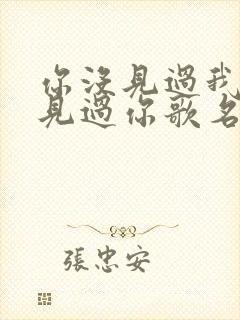 你沒見過我
見過你歌名
張忠安